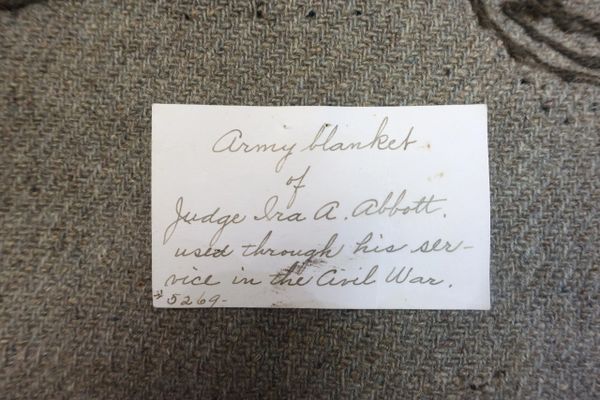 Army blanket
of
Judge Ira A. Abbott.
used through his ser-
vice in the Civil War.
5269-